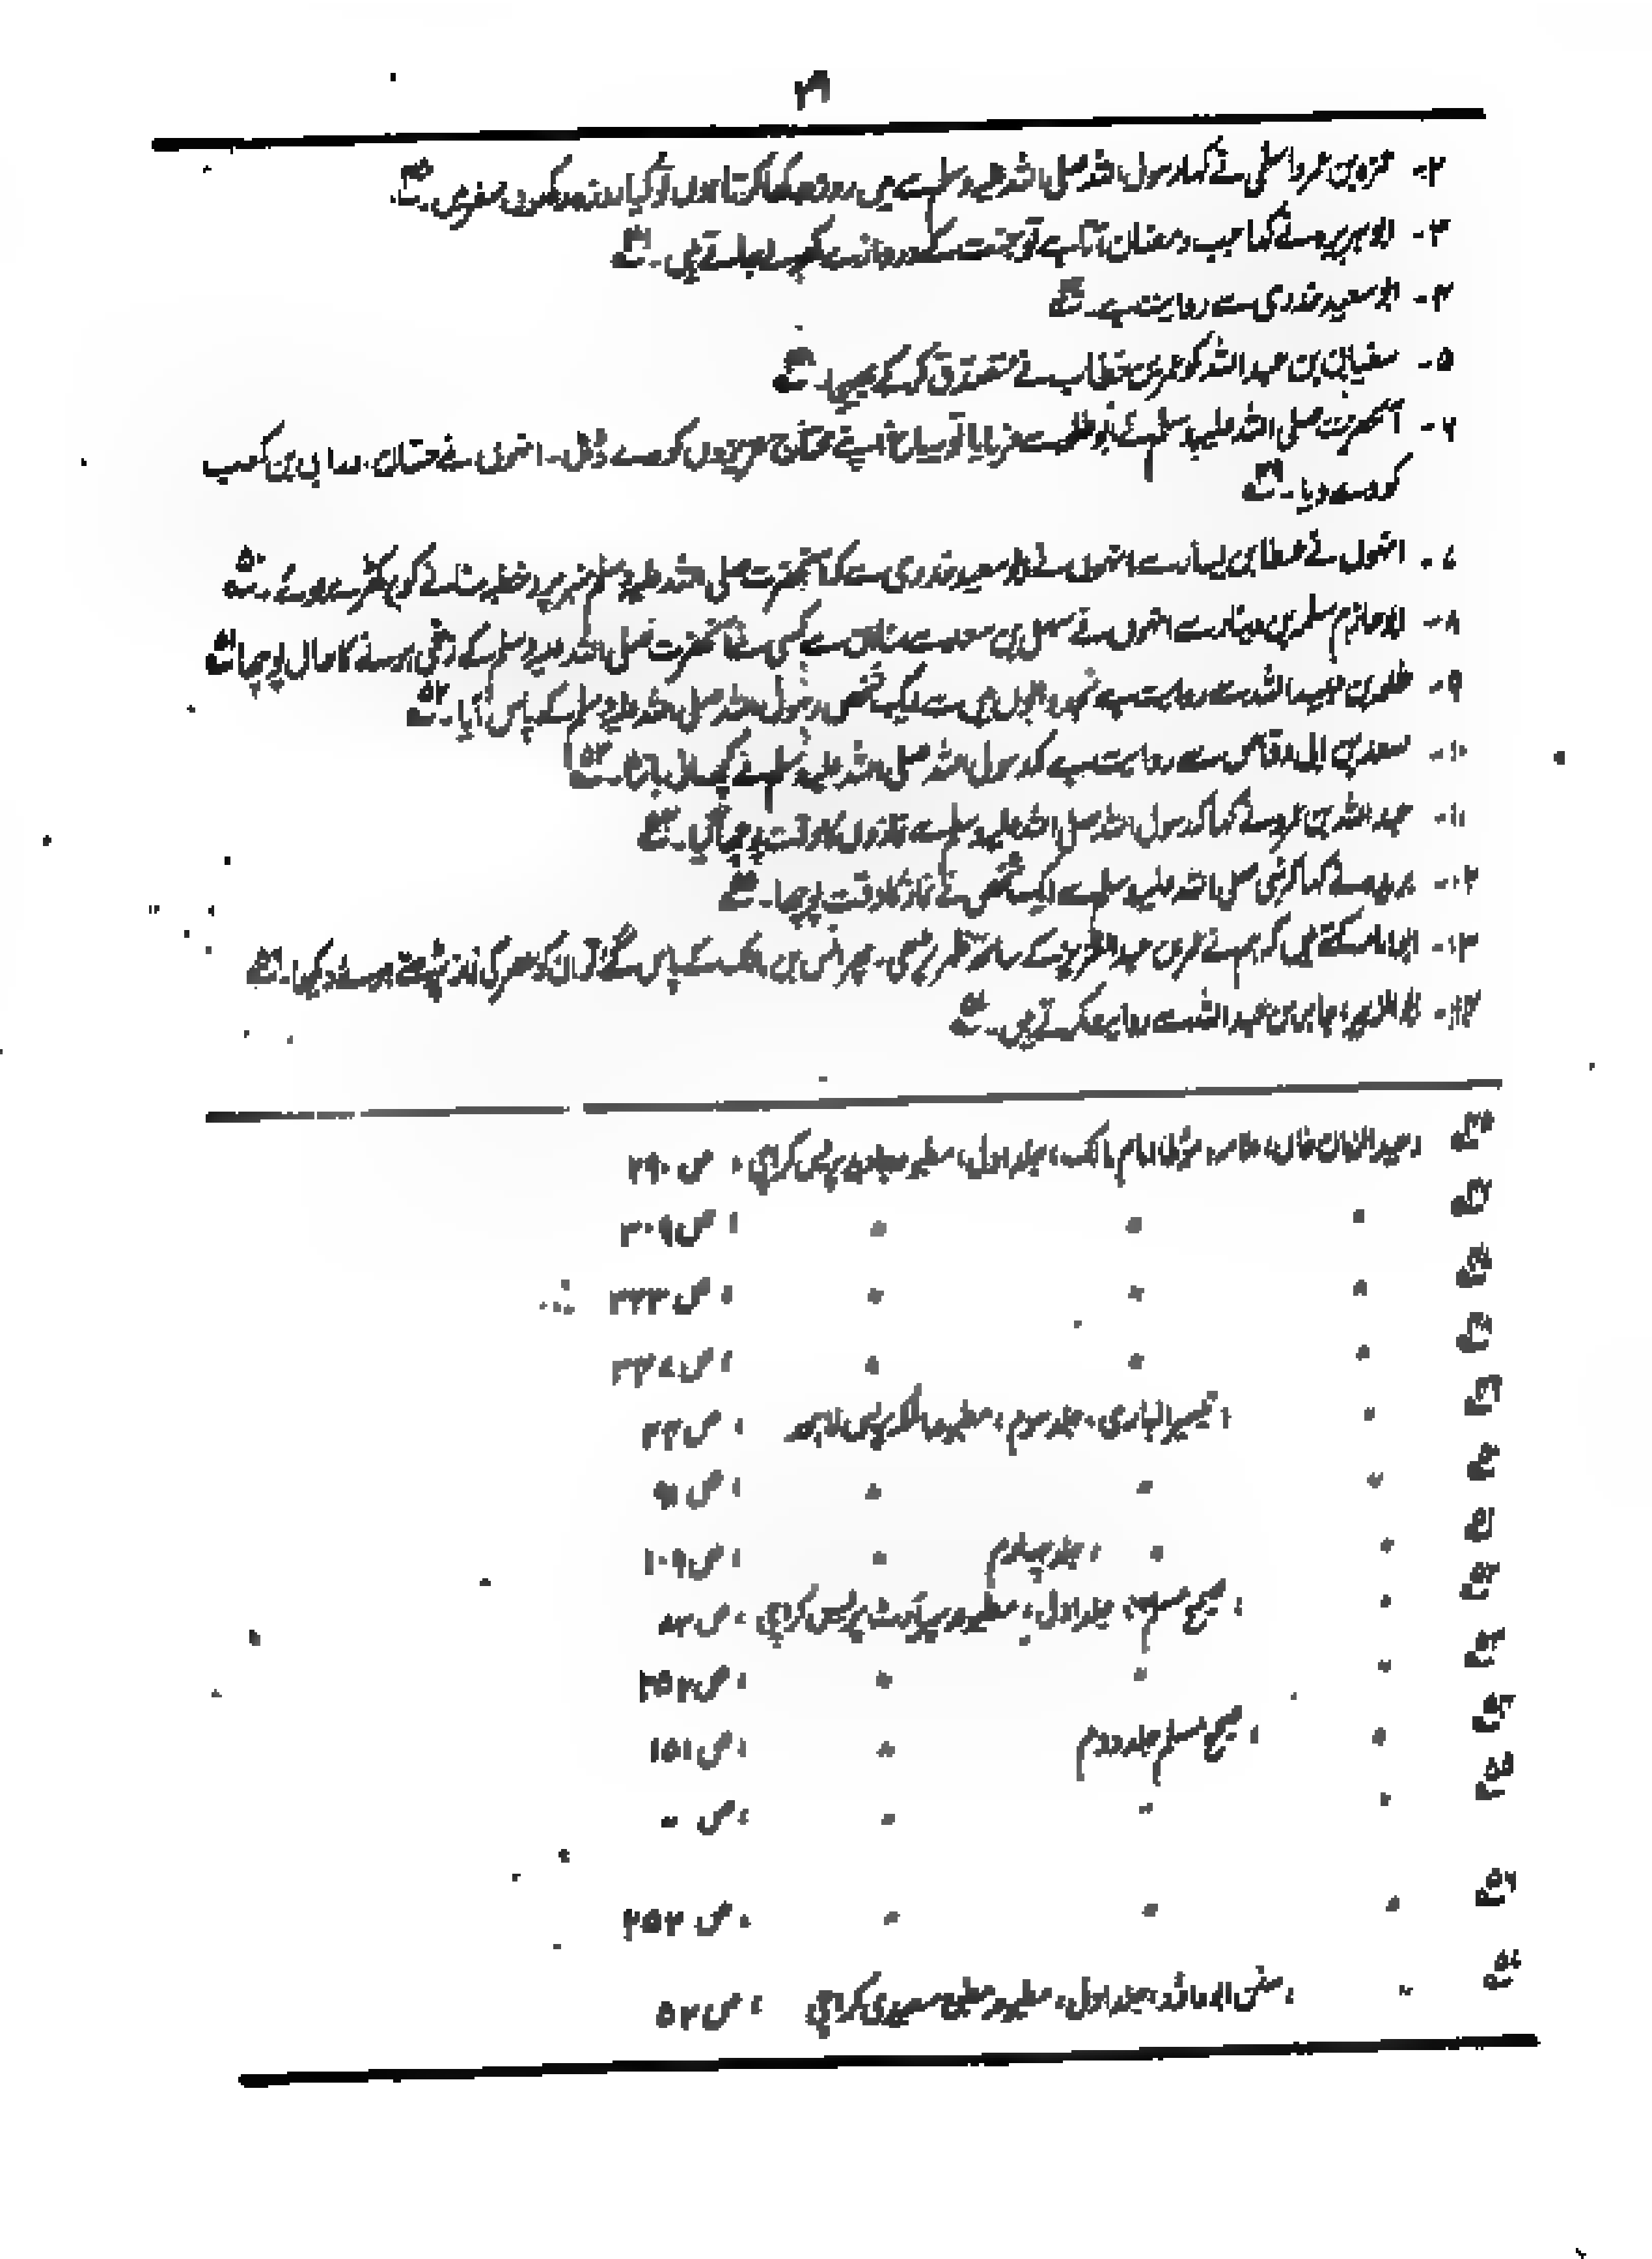 ۲- حمزہ بن عمرو اسلمی نے کہا رسول اللہ صلی اللہ علیہ وسلم سے میں روزہ رکھا کرتا ہوں تو کیا روزہ رکھوں سفر میں۔
۳- ابوہریرہ نے کہا جب رمضان آتا ہے تو جنت کے دروازے کھولے جاتے ہیں۔
۴- ابو سعید خدری سے روایت ہے۔
۵- سفیان بن عبد اللہ کو عمر بن خطاب نے متصدق کر کے بھیجا۔
۶- آنحضرت صلی اللہ علیہ وسلم نے ابو طلحہ سے فرمایا تو یہ باغ اپنے محتاج عزیزوں کو دے ڈال۔ انہوں نے حسان اور ابی بن کعب
کو دے دیا۔
۷- انہوں نے عطا بن یسار سے انہوں نے ابو سعید خدری سے کہ آنحضرت صلی اللہ علیہ وسلم منبر پر خطبہ سنانے کو کھڑے ہوئے۔
۸- ابو حازم سلمہ بن دینار سے انہوں نے سہل بن سعد سے سنا ان سے کسی نے آنحضرت صلی اللہ علیہ وسلم کے زخمی ہونے کا حال پوچھا
۹- طلحہ بن عبید اللہ سے روایت ہے نجد والوں میں سے ایک شخص رسول اللہ صلی اللہ علیہ وسلم کے پاس آیا۔
۱۰- سعد بن ابی وقاص سے روایت ہے کہ رسول اللہ صلی اللہ علیہ وسلم نے کچھ مال بانٹا
۱۱- عبد اللہ بن عمرو نے کہا کہ رسول اللہ صلی اللہ علیہ وسلم سے نمازوں کا وقت پوچھا گیا۔
۱۲- بریدہ نے کہا کہ نبی صلی اللہ علیہ وسلم سے ایک شخص نے نماز کا وقت پوچھا۔
۱۳- ابو امامہ کہتے ہیں کہ ہم نے عمر بن عبد العزیز کے ساتھ ظہر پڑھی۔ پھر انس بن مالک کے پاس گئے تو ان کو عصر کی نماز پڑھتے ہوئے دیکھا۔
۱۴- ابو الزبیر، جابر بن عبد اللہ سے روایت کرتے ہیں۔
وحید الزمان خان، علامہ، مؤطا امام مالک، جلد اول، مطبوعہ جاوید پریس کراچی، ص ۲۹۰
، ص ۳۰۹
، ص ۳۲۳
، ص ۳۳۷
، تیسیر الباری، جلد سوم، مطبوعہ پریس لاہور، ص ۴۳
، ص ۹۱
، جلد چہارم ، ص ۱۰۹
، صحیح مسلم، جلد اول، مطبوعہ سپر آرٹ پریس کراچی، ص ۸۳
، ص ۲۵۲
، صحیح مسلم جلد دوم ، ص ۱۵۱
، ص
، ص ۲۵۳
، سنن ابو داؤد، جلد اول، مطبوعہ مطبع سعیدی کراچی، ص ۵۲